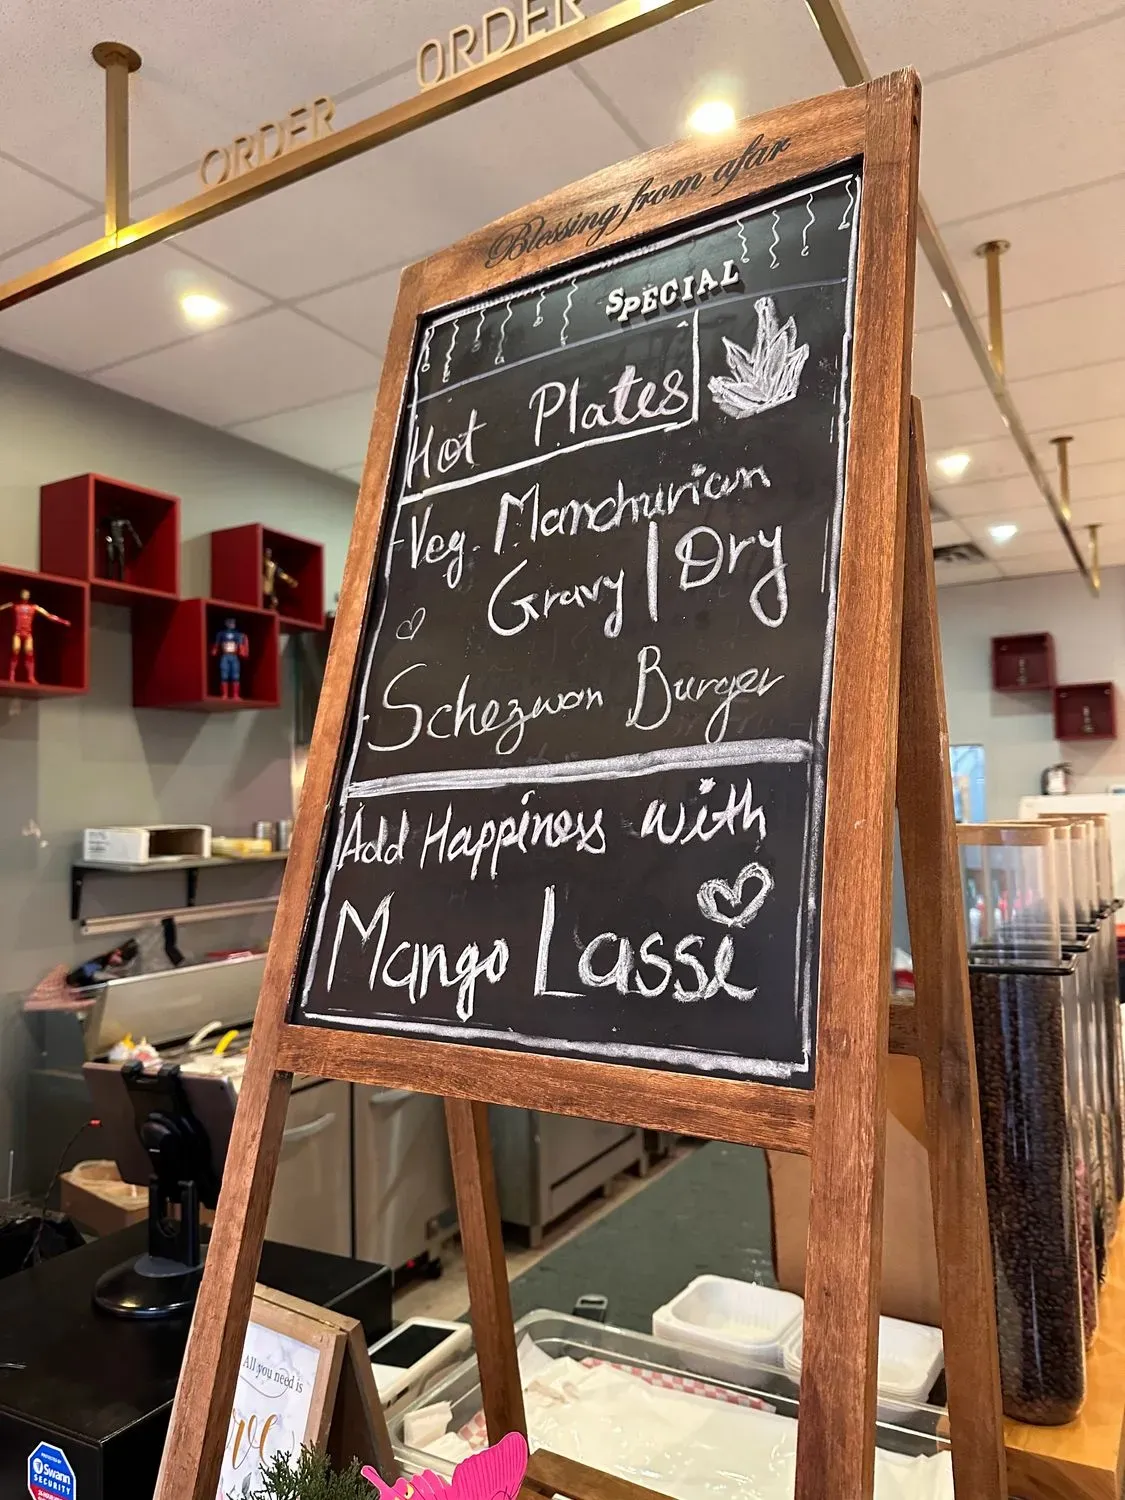 ORDER
ORDER
Blessing from afar
SPECIAL
Hot Plates
Veg. Manchurian
Gravy | Dry
Schezwan Burger
Add Happiness with
Mango Lassi
All you need is
Swann
SECURITY